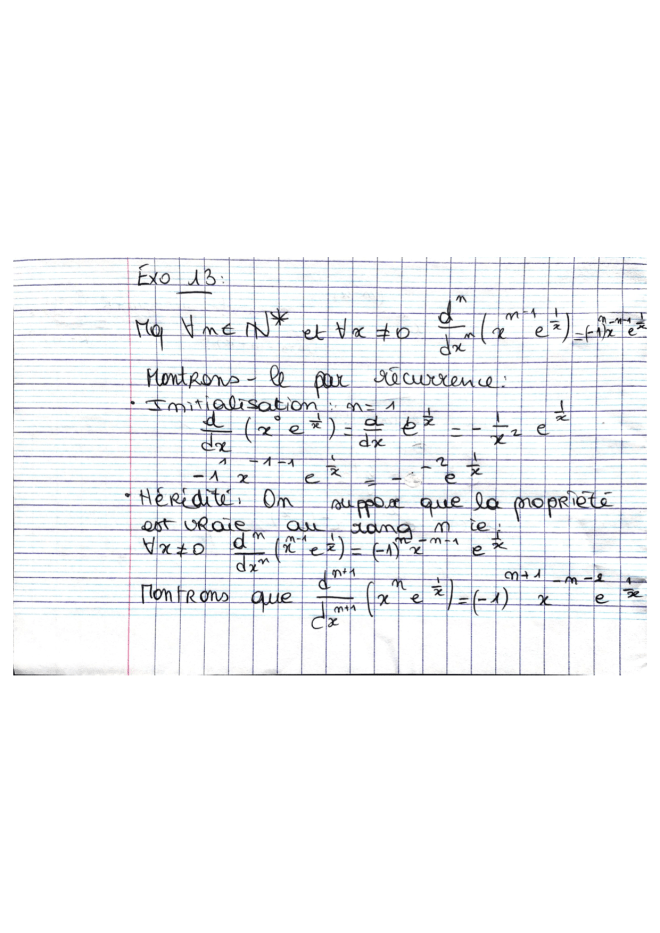 Exo 13:
Mq ∀n∈ℕ* et ∀x ≠0 d^n/dx^n (x^{n-1} e^{1/x}) = (-1)^n x^{-n-1} e^{1/x}
Montrons-le par récurrence:
• Initialisation: n=1
d/dx (x^0 e^{1/x}) = d/dx e^{1/x} = - 1/x² e^{1/x}
-1^1 x^{-1-1} e^{1/x} = - ^{-2} e^{1/x}
• Hérédité: On suppose que la propriété
est vraie au rang n ie:
∀x≠0 d^n/dx^n (x^{n-1} e^{1/x}) = (-1)^n x^{-n-1} e^{1/x}
Montrons que d^{n+1}/dx^{n+1} (x^n e^{1/x}) = (-1)^{n+1} x^{-n-2} e^{1/x}